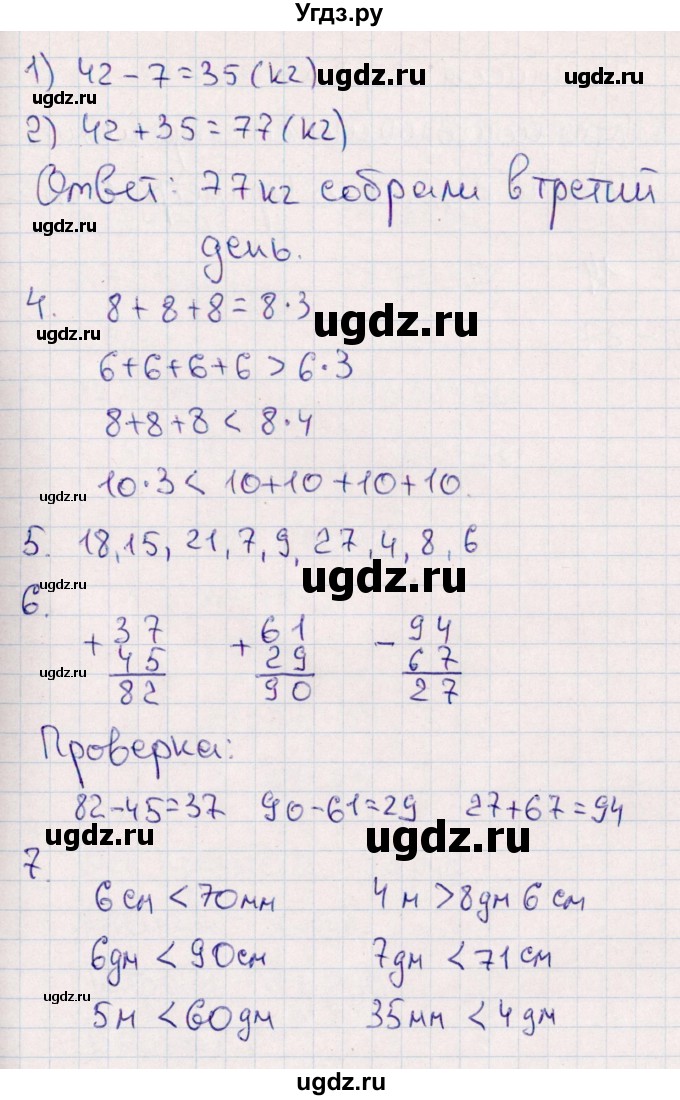 Угдз.ру
1) 42 - 7 = 35 (кг)
ugdz.ru
ugdz.ru
2) 42 + 35 = 77 (кг)
Ответ: 77 кг собрали в третий
ugdz.ru
день.
4. 8 + 8 + 8 = 8 · 3
ugdz.ru
ugdz.ru
6 + 6 + 6 + 6 > 6 · 3
8 + 8 + 8 < 8 · 4
10 · 3 < 10 + 10 + 10 + 10
ugdz.ru
5. 18, 15, 21, 7, 9, 27, 4, 8, 6
ugdz.ru
ugdz.ru
6.
+ 37 + 61 - 94
45 29 67
ugdz.ru
82 90 27
Проверка:
82 - 45 = 37 90 - 61 = 29 27 + 67 = 94
ugdz.ru
ugdz.ru
7.
6 см < 70 мм 4 м > 8 дм 6 см
6 дм < 90 см 7 дм < 71 см
ugdz.ru
5 м < 60 дм 35 мм < 4 дм
ugdz.ru
ugdz.ru